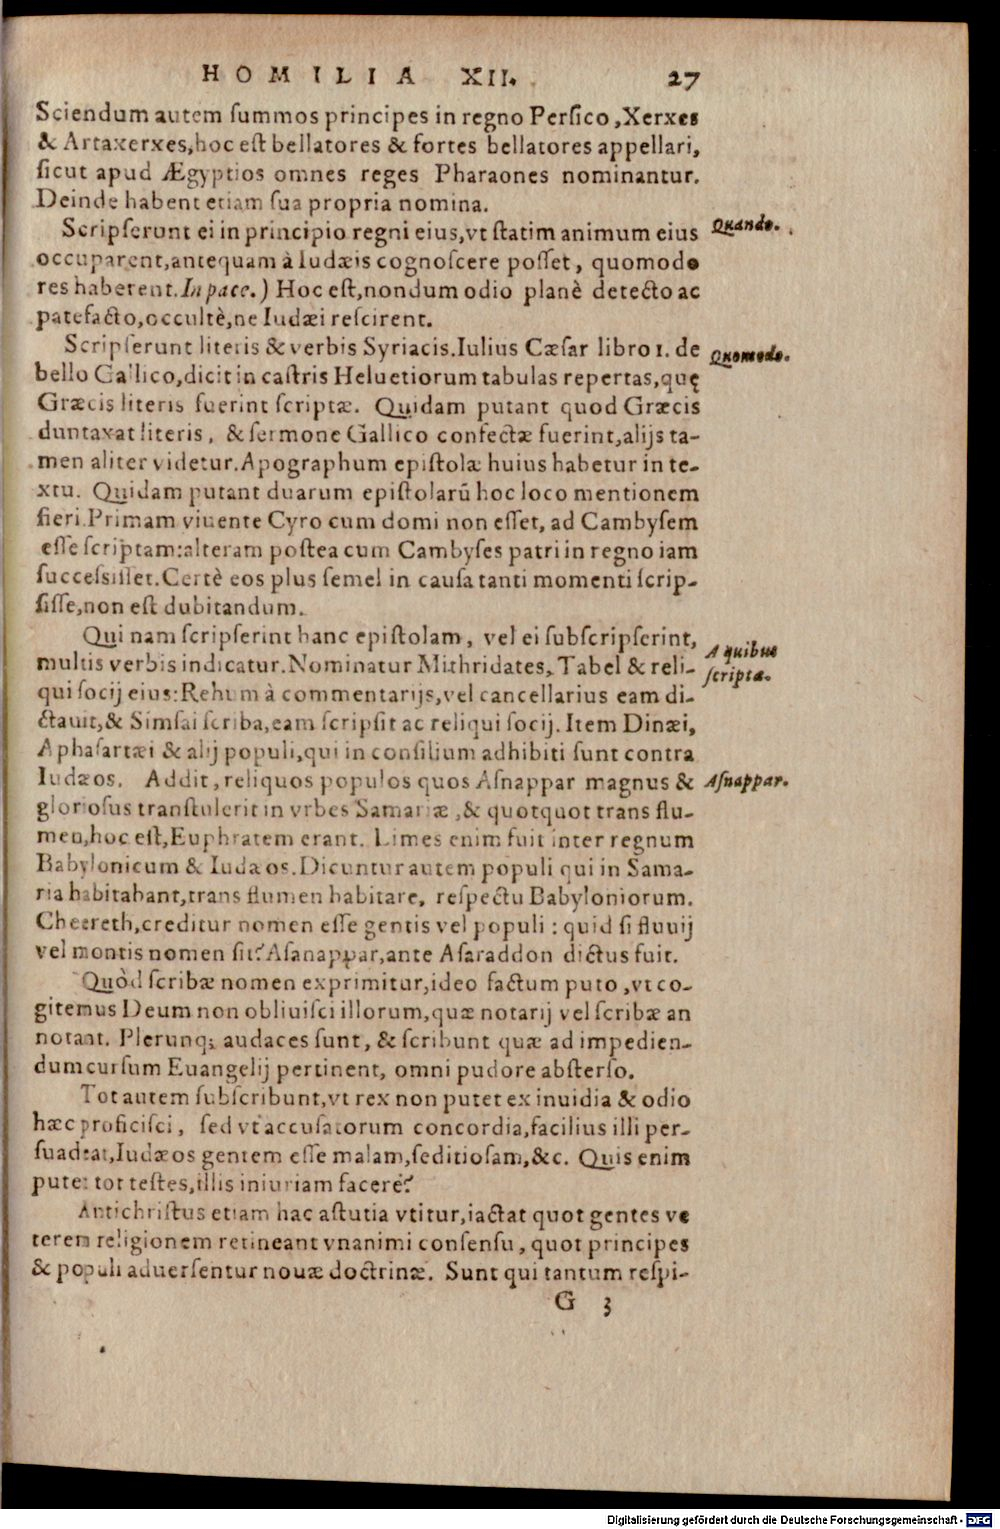 HOMILIA XII. 27
Sciendum autem ſummos principes in regno Perſico, Xerxes
& Artaxerxes, hoc eſt bellatores & fortes bellatores appellari,
ſicut apud Ægyptios omnes reges Pharaones nominantur.
Deinde habent etiam ſua propria nomina.
Scripſerunt ei in principio regni eius, vt ſtatim animum eius
Quando.
occuparent, antequam à Iudæis cognoſcere poſſet, quomodo
res haberent. In pace.) Hoc eſt, nondum odio planè detecto ac
patefacto, occultè, ne Iudæi reſcirent.
Scripſerunt literis & verbis Syriacis. Iulius Cæſar libro 1. de
Quomodo.
bello Gallico, dicit in caſtris Heluetiorum tabulas repertas, quę
Græcis literis fuerint ſcriptæ. Quidam putant quod Græcis
duntaxat literis, & ſermone Gallico confectæ fuerint, alijs ta-
men aliter videtur. Apographum epiſtolæ huius habetur in te-
xtu. Quidam putant duarum epiſtolarũ hoc loco mentionem
fieri. Primam viuente Cyro cum domi non eſſet, ad Cambyſem
eſſe ſcriptam: alteram poſtea cum Cambyſes patri in regno iam
ſucceſsiſſet. Certè eos plus ſemel in cauſa tanti momenti ſcrip-
ſiſſe, non eſt dubitandum.
Qui nam ſcripſerint hanc epiſtolam, vel ei ſubſcripſerint,
A quibus
multis verbis indicatur. Nominatur Mithridates, Tabel & reli-
ſcripta.
qui ſocij eius: Rehum à commentarijs, vel cancellarius eam di-
ctauit, & Simſai ſcriba, eam ſcripſit ac reliqui ſocij. Item Dinæi,
Aphaſartæi & alij populi, qui in conſilium adhibiti ſunt contra
Iudæos. Addit, reliquos populos quos Aſnappar magnus &
Aſnappar.
glorioſus tranſtulerit in vrbes Samariæ, & quotquot trans flu-
men, hoc eſt, Euphratem erant. Limes enim fuit inter regnum
Babylonicum & Iudæos. Dicuntur autem populi qui in Sama-
ria habitabant, trans flumen habitare, reſpectu Babyloniorum.
Cheereth, creditur nomen eſſe gentis vel populi: quid ſi fluuij
vel montis nomen ſit? Aſanappar, ante Aſaraddon dictus fuit.
Quòd ſcribæ nomen exprimitur, ideo factum puto, vt co-
gitemus Deum non obliuiſci illorum, quæ notarij vel ſcribæ an
notant. Plerunq; audaces ſunt, & ſcribunt quæ ad impedien-
dum curſum Euangelij pertinent, omni pudore abſterſo.
Tot autem ſubſcribunt, vt rex non putet ex inuidia & odio
hæc proficiſci, ſed vt accuſatorum concordia, facilius illi per-
ſuadeat, Iudæos gentem eſſe malam, ſeditioſam, &c. Quis enim
putet tot teſtes, illis iniuriam facere?
Antichriſtus etiam hac aſtutia vtitur, iactat quot gentes ve
terem religionem retineant vnanimi conſenſu, quot principes
& populi aduerſentur nouæ doctrinæ. Sunt qui tantum reſpi-
G 3
Digitalisierung gefördert durch die Deutsche Forschungsgemeinschaft - DFG